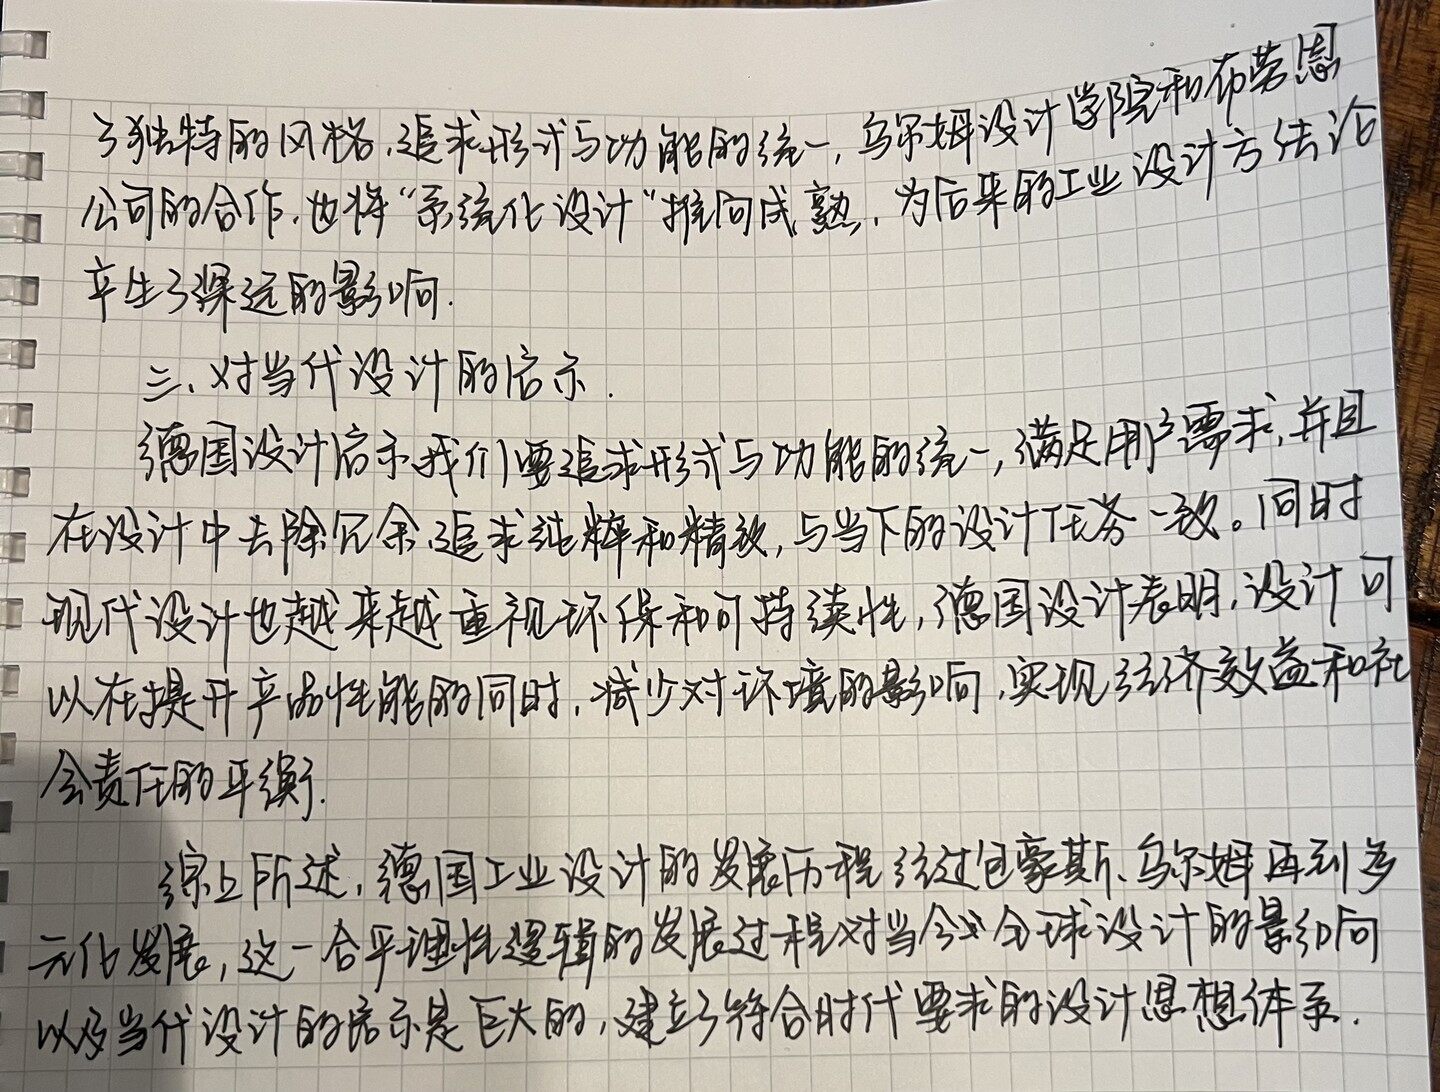 了独特的风格,追求形式与功能的统一,乌尔姆设计学院和布劳恩
公司的合作,也将“系统化设计”推向成熟,为后来的工业设计方法论
产生了深远的影响.
三、对当代设计的启示.
德国设计启示我们要追求形式与功能的统一,满足用户需求,并且
在设计中去除冗余,追求纯粹和精致,与当下的设计任务一致。同时
现代设计也越来越重视环保和可持续性,德国设计表明,设计可
以在提升产品性能的同时,减少对环境的影响,实现经济效益和社
会责任的平衡.
综上所述,德国工业设计的发展历程经过包豪斯、乌尔姆再到多
元化发展,这一合乎理性逻辑的发展过程对当今全球设计的影响
以及当代设计的启示是巨大的,建立了符合时代要求的设计思想体系.